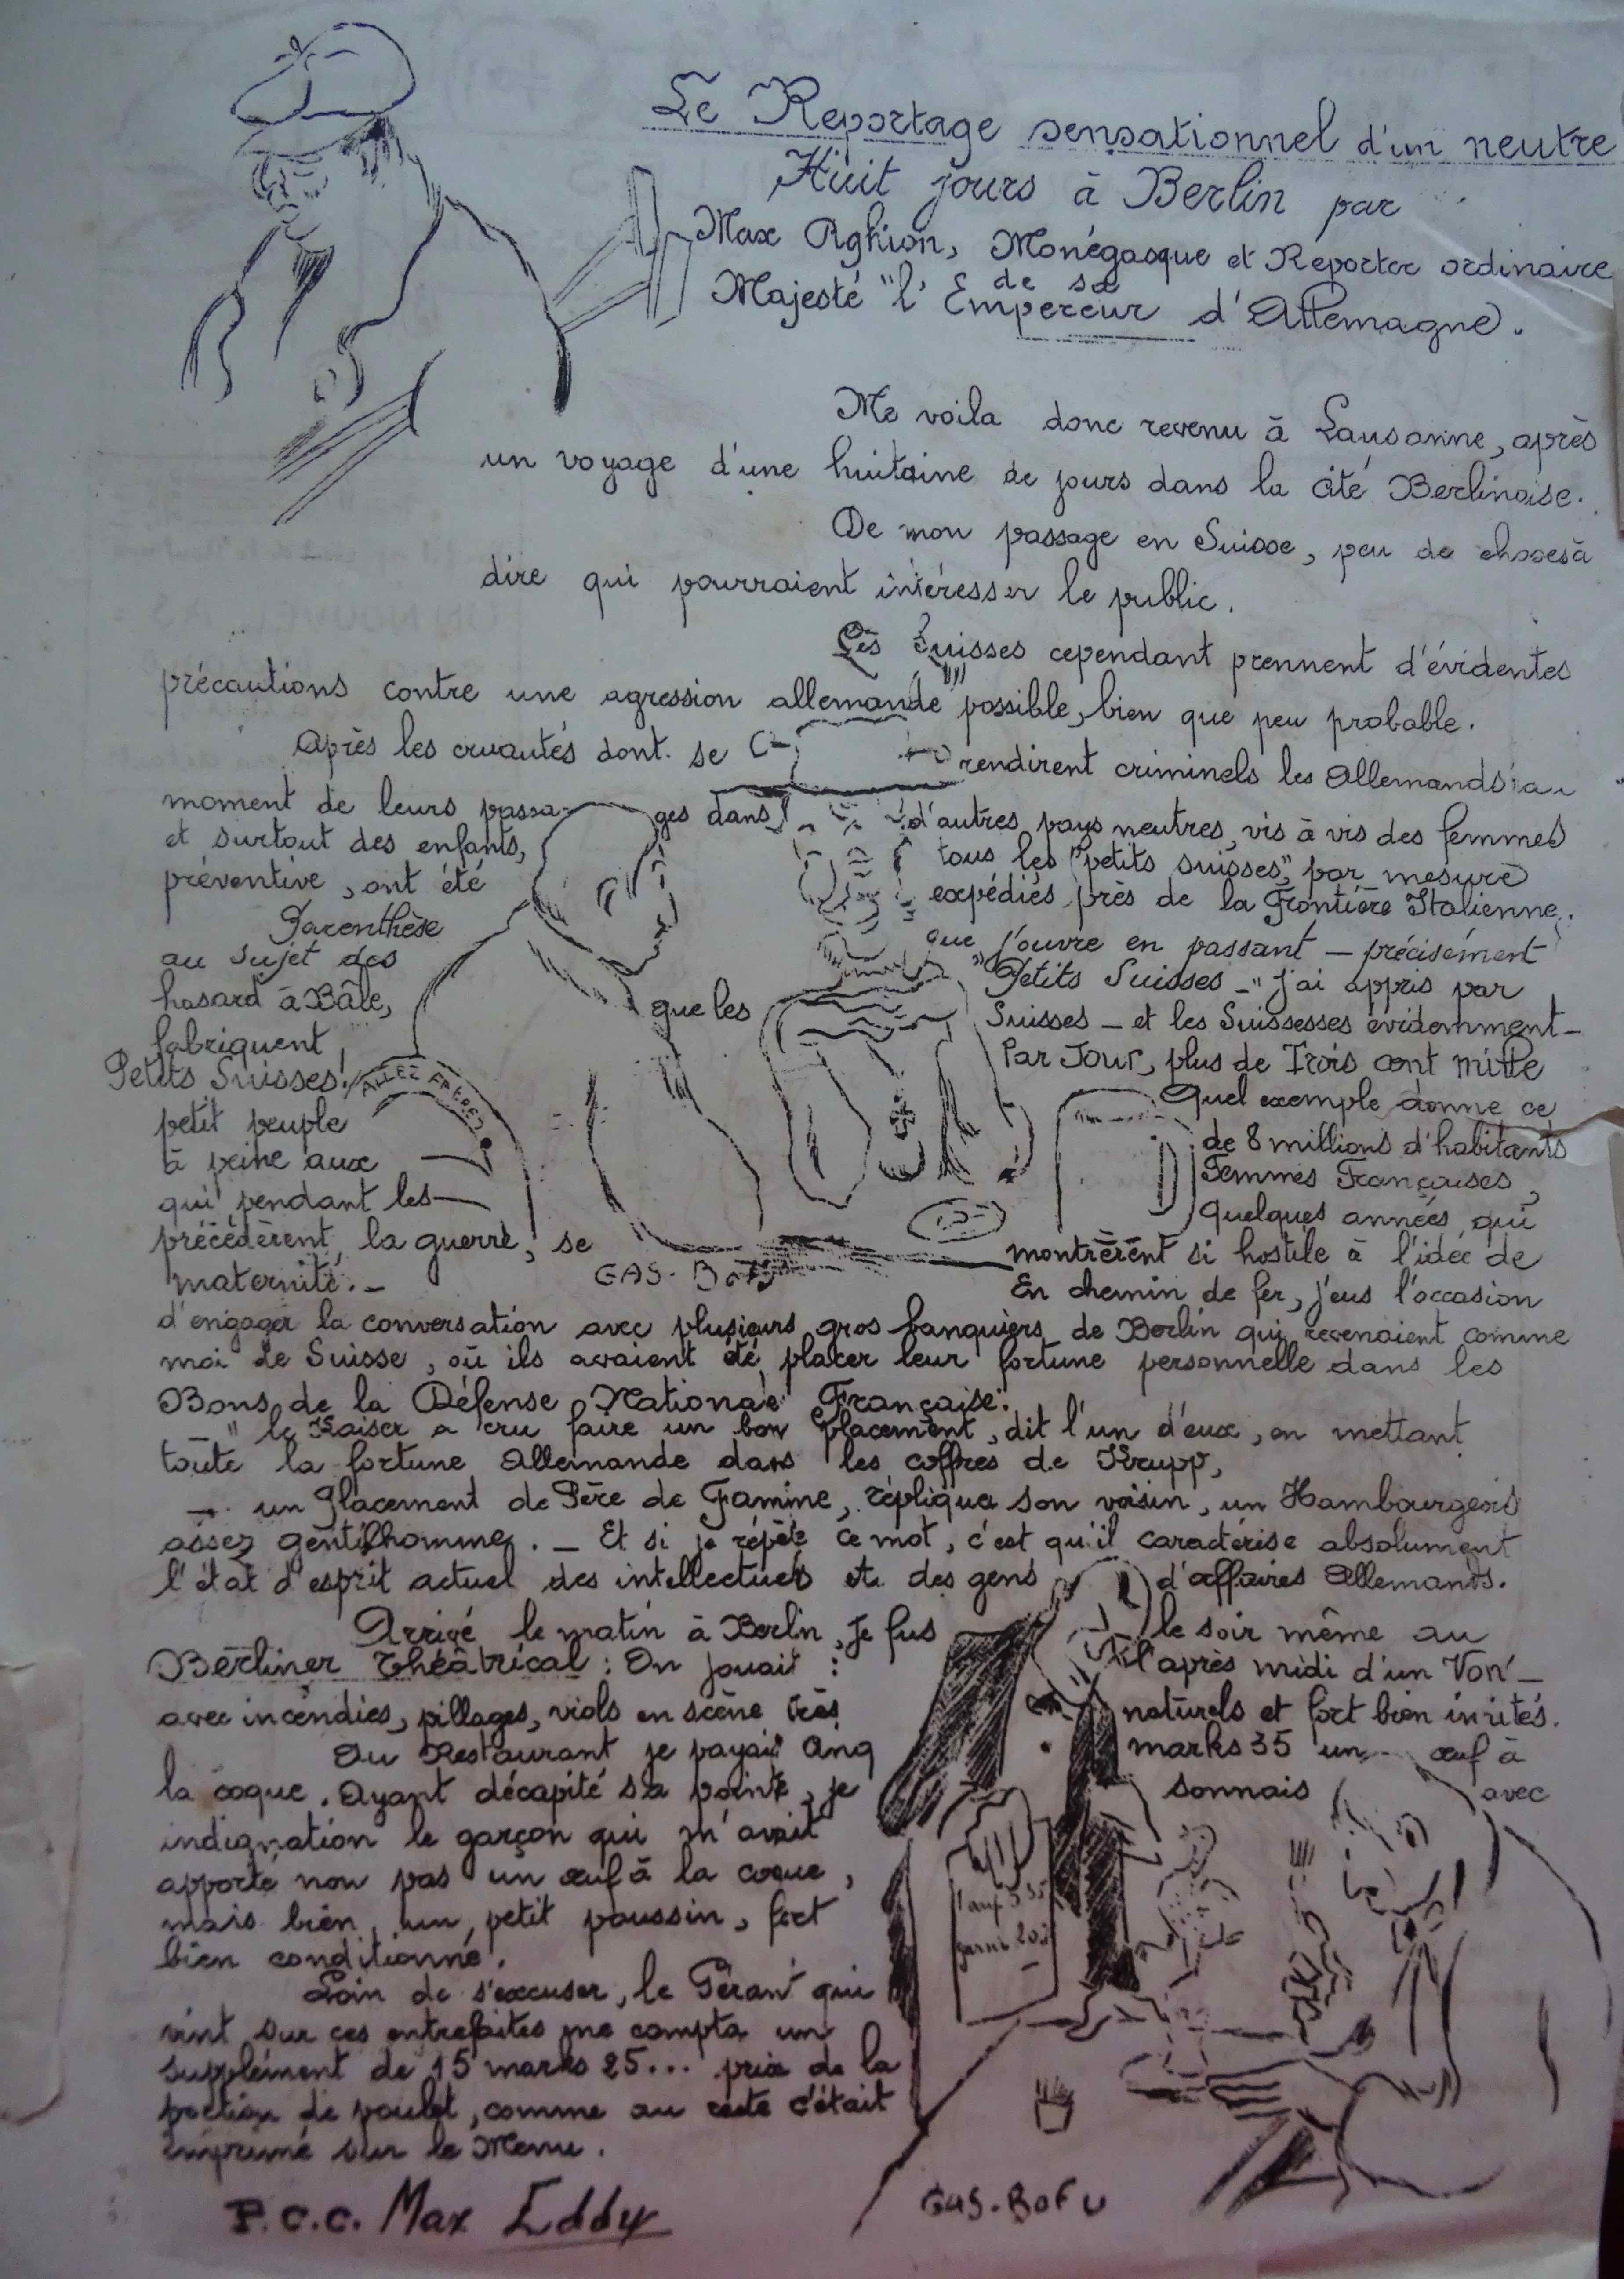 Le Reportage sensationnel d'un neutre
Huit jours à Berlin par
Max Aghion, Monégasque et Reporter ordinaire
de sa
Majesté "l'Empereur d'Allemagne.
Me voila donc revenu à Lausanne, après
un voyage d'une huitaine de jours dans la cité Berlinoise.
De mon passage en Suisse, peu de choses à
dire qui pourraient intéresser le public.
Les Suisses cependant prennent d'évidentes
précautions contre une agression allemande possible, bien que peu probable.
Après les cruautés dont se rendirent criminels les Allemands au
moment de leurs passages dans d'autres pays neutres, vis à vis des femmes
et surtout des enfants, tous les "petits suisses", par mesure
préventive, ont été expédiés près de la Frontière Italienne.
Parenthèse que j'ouvre en passant — précisément
au sujet des "Petits Suisses" — j'ai appris par
hasard à Bâle, que les Suisses — et les Suissesses évidemment —
fabriquent Par Jour, plus de Trois cent mille
Petits Suisses!
ALLEZ FRERES
Quel exemple donne ce
petit peuple de 8 millions d'habitants
à peine aux Femmes Françaises,
qui pendant les quelques années qui
précédèrent la guerre, se montrèrent si hostile à l'idée de
maternité. —
GAS-BOFU
En chemin de fer, j'eus l'occasion
d'engager la conversation avec plusieurs gros banquiers de Berlin qui revenaient comme
moi de Suisse, où ils avaient été placer leur fortune personnelle dans les
Bons de la Défense Nationale Française:
— "le Kaiser a cru faire un bon placement, dit l'un d'eux, en mettant
toute la fortune Allemande dans les coffres de Krupp,
— un Placement de Père de Famine, répliqua son voisin, un Hambourgeois
assez gentilhomme. — Et si je répète ce mot, c'est qu'il caractérise absolument
l'état d'esprit actuel des intellectuels et des gens d'affaires Allemands.
Arrivé le matin à Berlin, je fus le soir même au
Berliner théâtrical: On jouait: l'après midi d'un Von —
avec incendies, pillages, viols en scène très naturels et fort bien imités.
Au Restaurant je payai cinq marks 35 un œuf à
la coque. Ayant décapité sa pointe, je sonnais avec
indignation le garçon qui m'avait
apporté non pas un œuf à la coque,
mais bien, un petit poussin, fort
bien conditionné.
Loin de s'excuser, le Gérant qui
vint sur ces entrefaites me compta un
supplément de 15 marks 25... prix de la
portion de poulet, comme au reste c'était
imprimé sur le Menu.
P.C.C. Max Eddy
GUS-BOFU